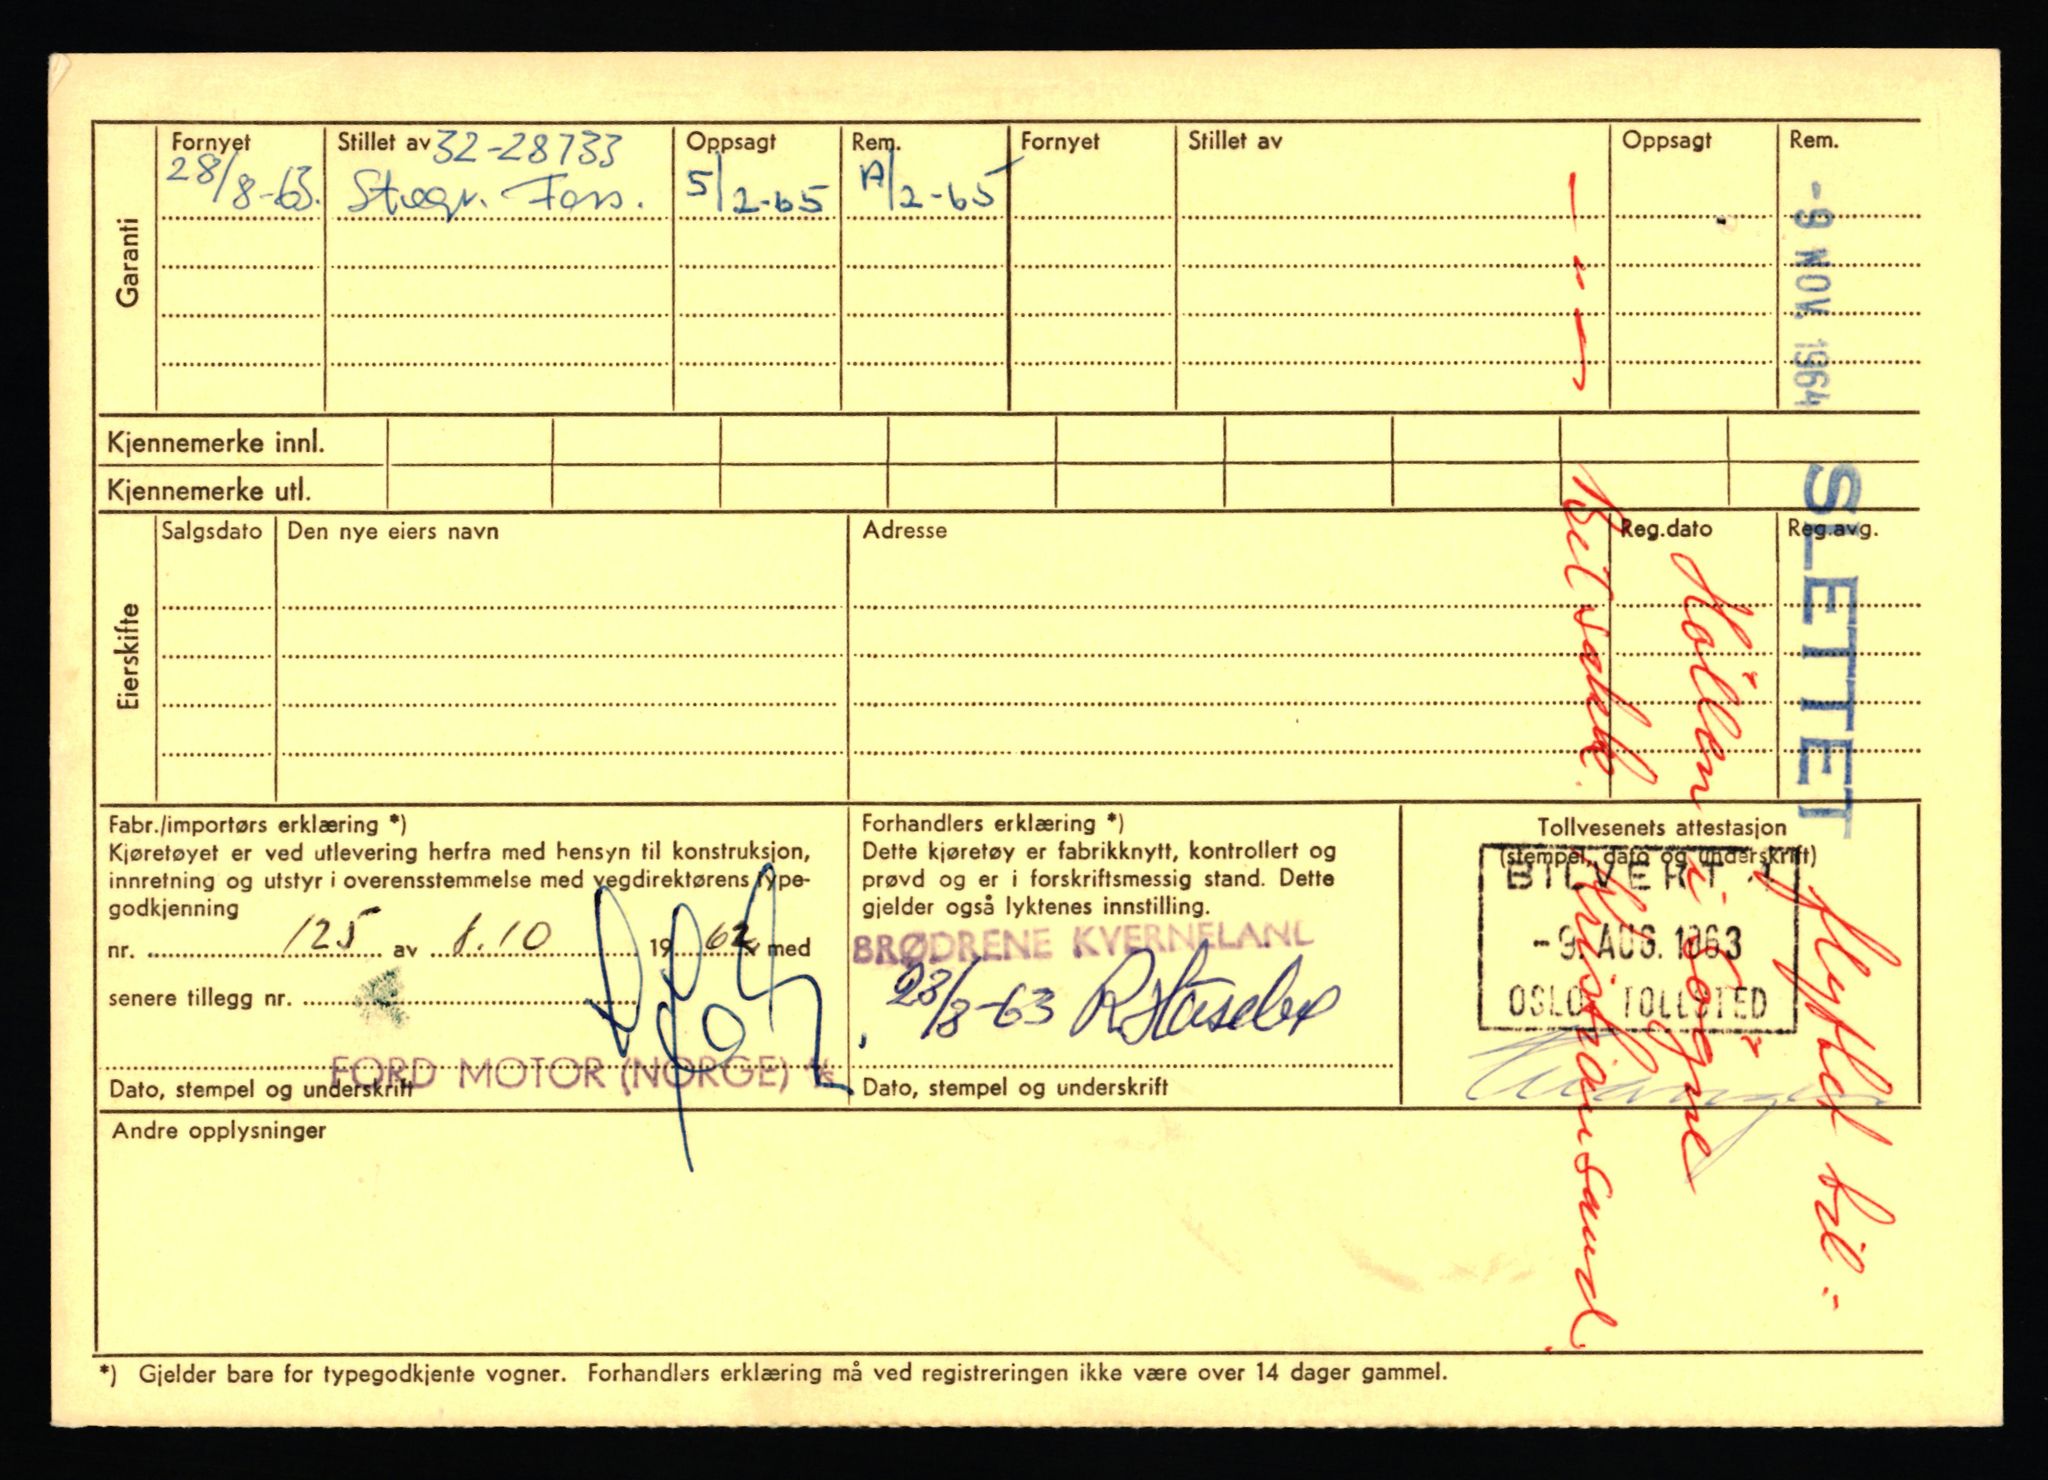 Garanti
Fornyet Stillet av 32-28733 Oppsagt Rem. Fornyet Stillet av Oppsagt Rem.
28/8-63. Storgr. Forss. 5/2-65 A/2-65
Kjennemerke innl.
Kjennemerke utl.
Eierskifte
Salgsdato Den nye eiers navn Adresse Reg.dato Reg.avg.
Fabr./importørs erklæring *)
Kjøretøyet er ved utlevering herfra med hensyn til konstruksjon,
innretning og utstyr i overensstemmelse med vegdirektørens type-
godkjenning
nr. 125 av 1.10 19 62 med
senere tillegg nr.
FORD MOTOR (NORGE) A/S
Dato, stempel og underskrift
Forhandlers erklæring *)
Dette kjøretøy er fabrikknytt, kontrollert og
prøvd og er i forskriftsmessig stand. Dette
gjelder også lyktenes innstilling.
BRØDRENE KVERNELAND
23/8-63
Dato, stempel og underskrift
Tollvesenets attestasjon
(stempel, dato og underskrift)
BILVERK
-9. AUG. 1963
OSLO TOLLSTED
Andre opplysninger
*) Gjelder bare for typegodkjente vogner. Forhandlers erklæring må ved registreringen ikke være over 14 dager gammel.
-9 NOV. 1964 SLETTET
flyttet til:
Höllen i Sögne
Kristiansand